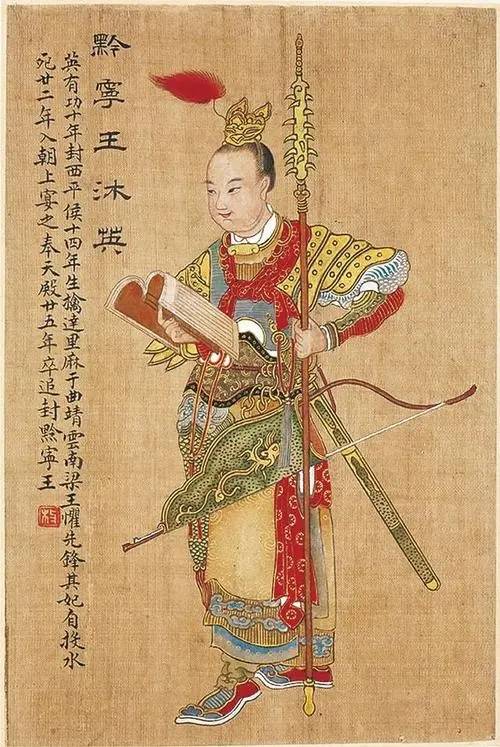 黔寧王沐英
英有功十年封西平侯十四年生擒達里麻于曲靖雲南梁王懼先鋒其妃自投水
死廿二年入朝上宴之奉天殿廿五年卒追封黔寧王